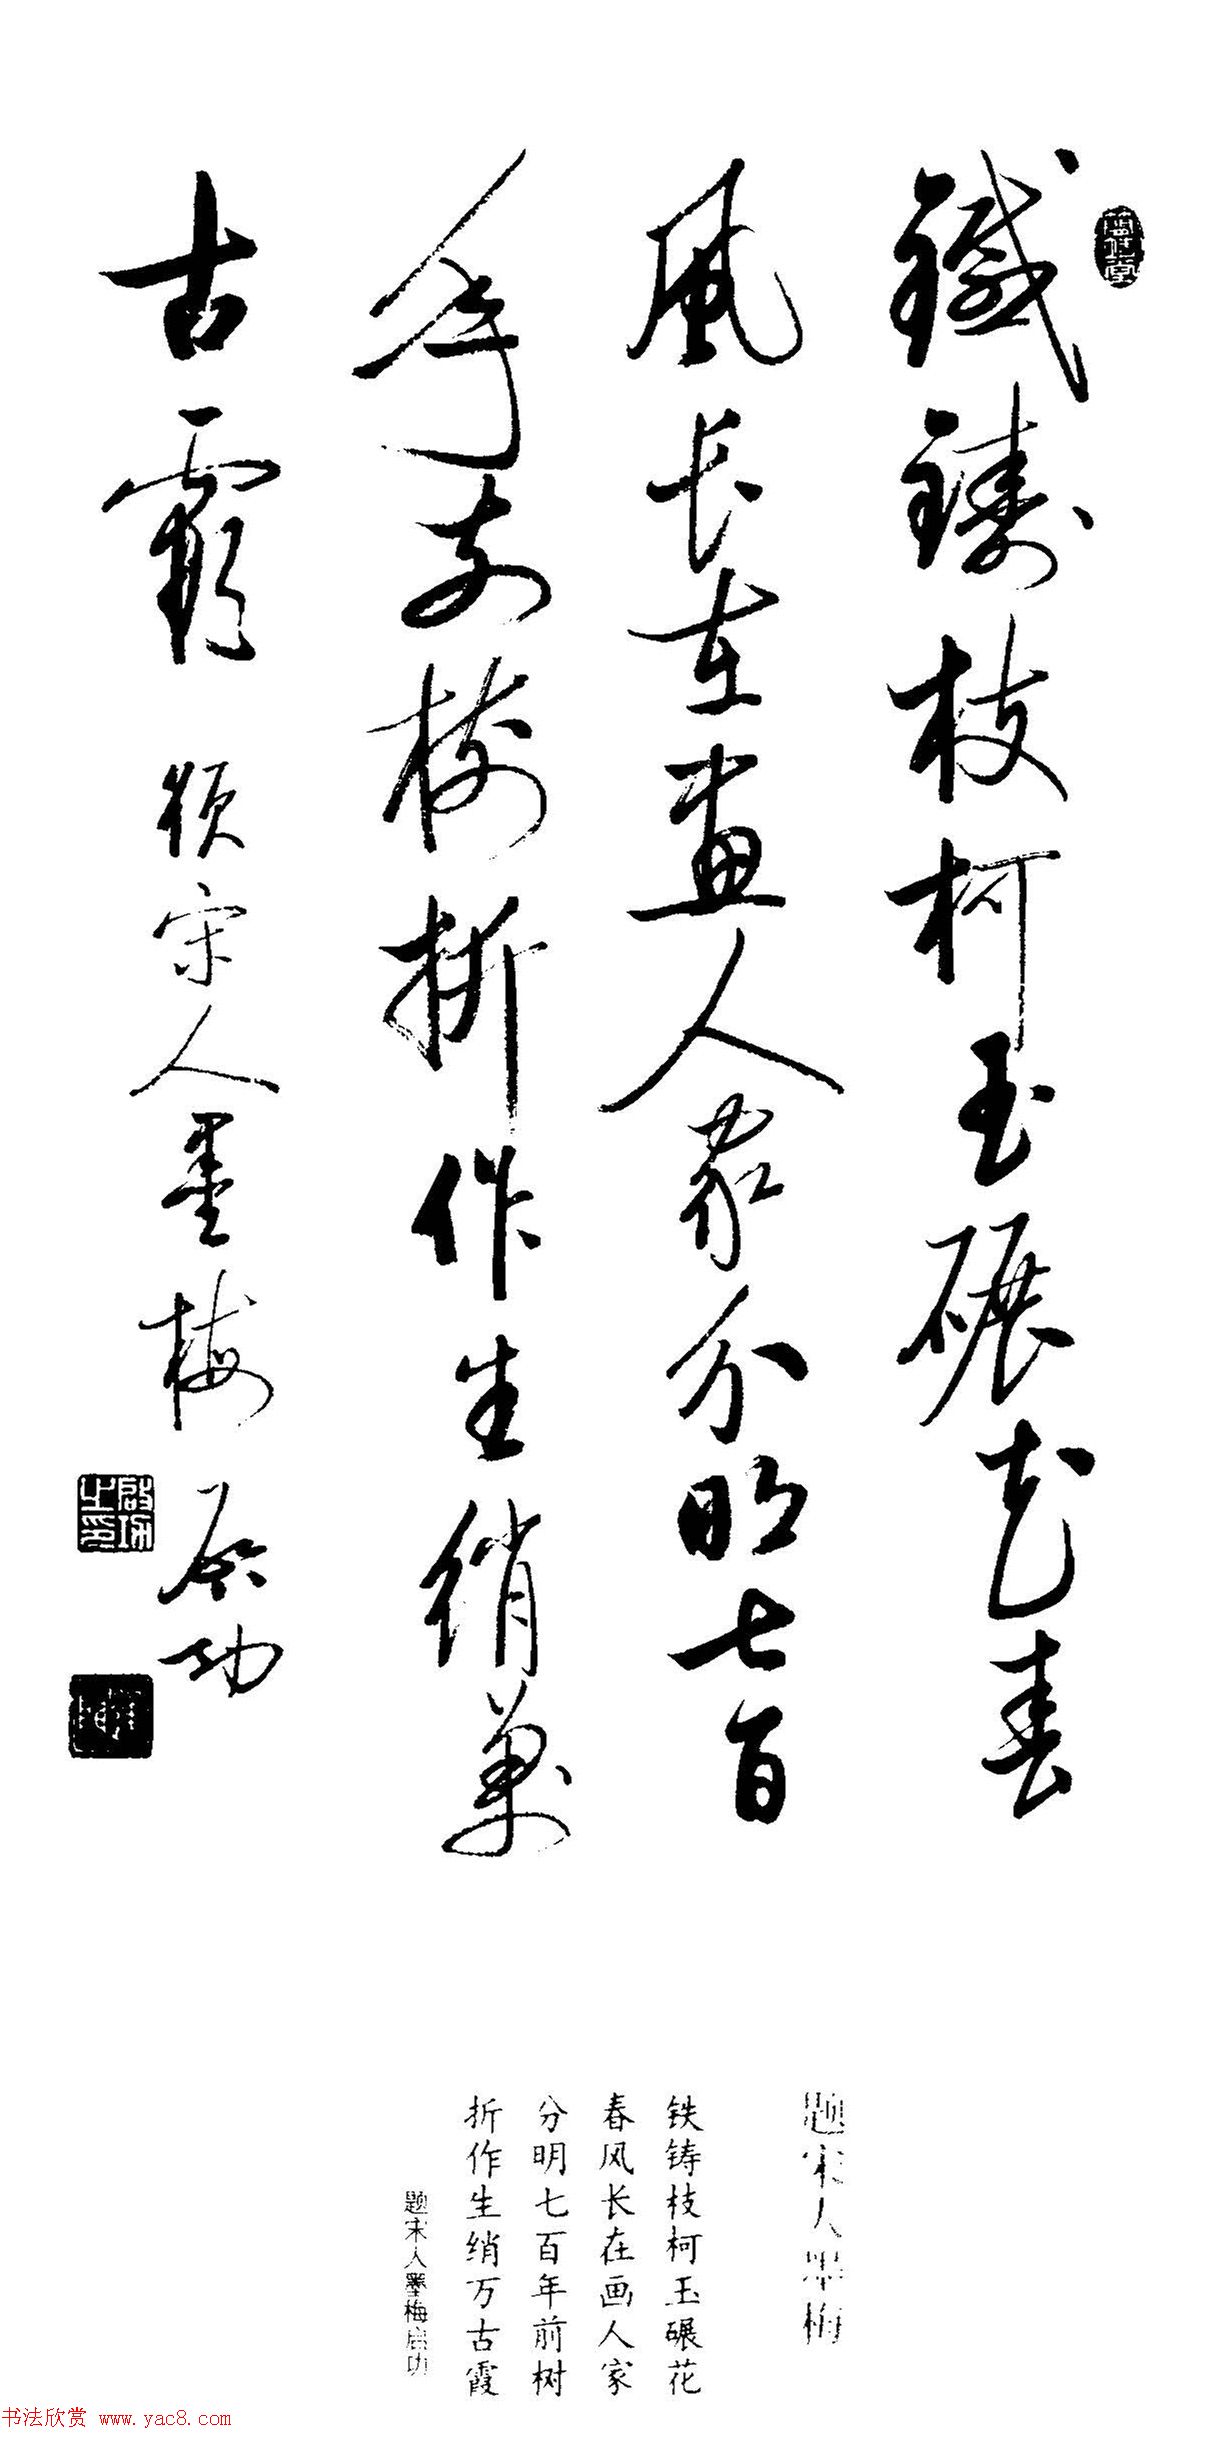 鐵鑄枝柯玉碾花春
風长在畫人家分明七百
年前樹折作生綃萬
古霞 題宋人墨梅 启功
啟功之印
题宋人墨梅
铁铸枝柯玉碾花
春风长在画人家
分明七百年前树
折作生绡万古霞
题宋人墨梅启功
书法欣赏 www.yac8.com